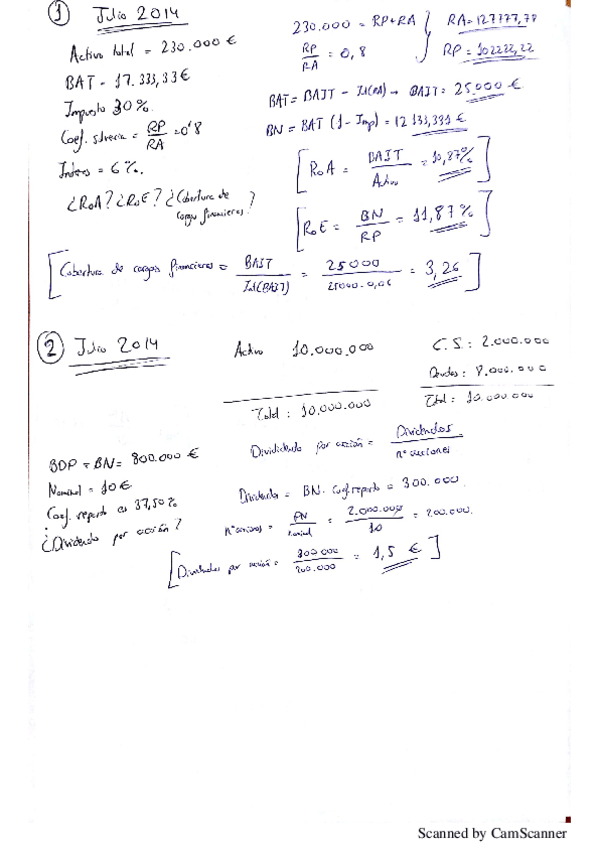 ① Julio 2014
Activo total = 230.000 €
BAT = 17.333,33 €
Impuesto 30%
Coef. solvencia = RP/RA = 0'8
Interes = 6%.
¿RoA? ¿RoE? ¿Cobertura de cargas financieras?
230.000 = RP+RA
RP/RA = 0,8
RA = 127777,78
RP = 102222,22
BAT = BAIT - Int(RA) → BAIT = 25.000 €
BN = BAT (1 - Imp) = 12133,331 €
[RoA = BAIT/Activo = 10,87%]
[RoE = BN/RP = 11,87%]
[Cobertura de cargas financieras = BAIT/Int(BAIT) = 25000/25000·0,06 = 3,26]
② Julio 2014
Activo 10.000.000
C.S.: 2.000.000
Deudas: 8.000.000
Total: 10.000.000
Total: 10.000.000
BDP = BN = 800.000 €
Nominal = 10 €
Coef. reparto es 37,50%
¿Dividendo por acción?
Dividendo por acción = Dividendos/nº acciones
Dividendo = BN. Coef. reparto = 300.000
nº acciones = PN/nominal = 2.000.000/10 = 200.000
[Dividendos por acción = 300.000/200.000 = 1,5 €]
Scanned by CamScanner